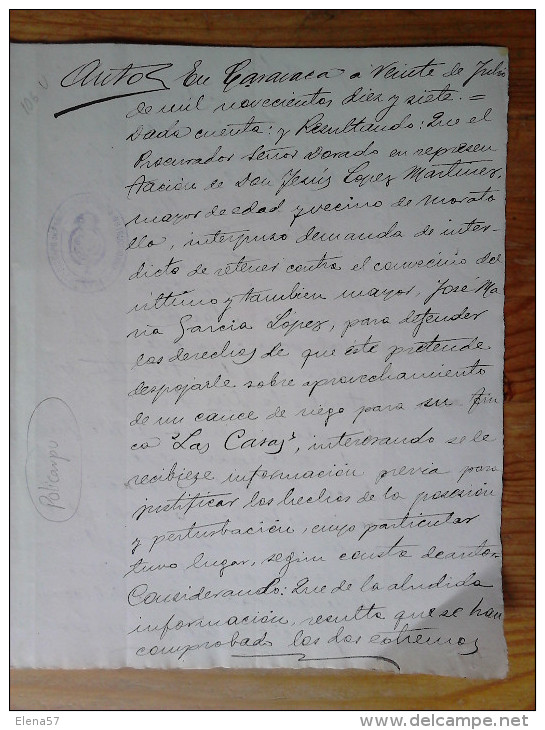 Auto En Caravaca a Veinte de Julio
de mil novecientos diez y siete. =
Dada cuenta: y Resultando: Que el
Procurador Señor Dorado en represen
tación de Don Jesús Lopez Martinez,
mayor de edad y vecino de Morata
lla, interpuso demanda de inter-
dicto de retener contra el convecino del
ultimo y tambien mayor, Jose Ma
ria Garcia López, para defender
los derechos de que éste pretende
despojarle sobre aprovechamiento
de un cauce de riego para su fin
ca "Las Casas", interesando se le
recibiese información previa para
justificar los hechos de la posesión
y perturbación, cuyo particular
tuvo lugar, segun consta de autos.
Considerando: Que de la aludida
información, resulta que se han
comprobado los dos extremos
106 V
Policarpo
Elena57
www.delcampe.net